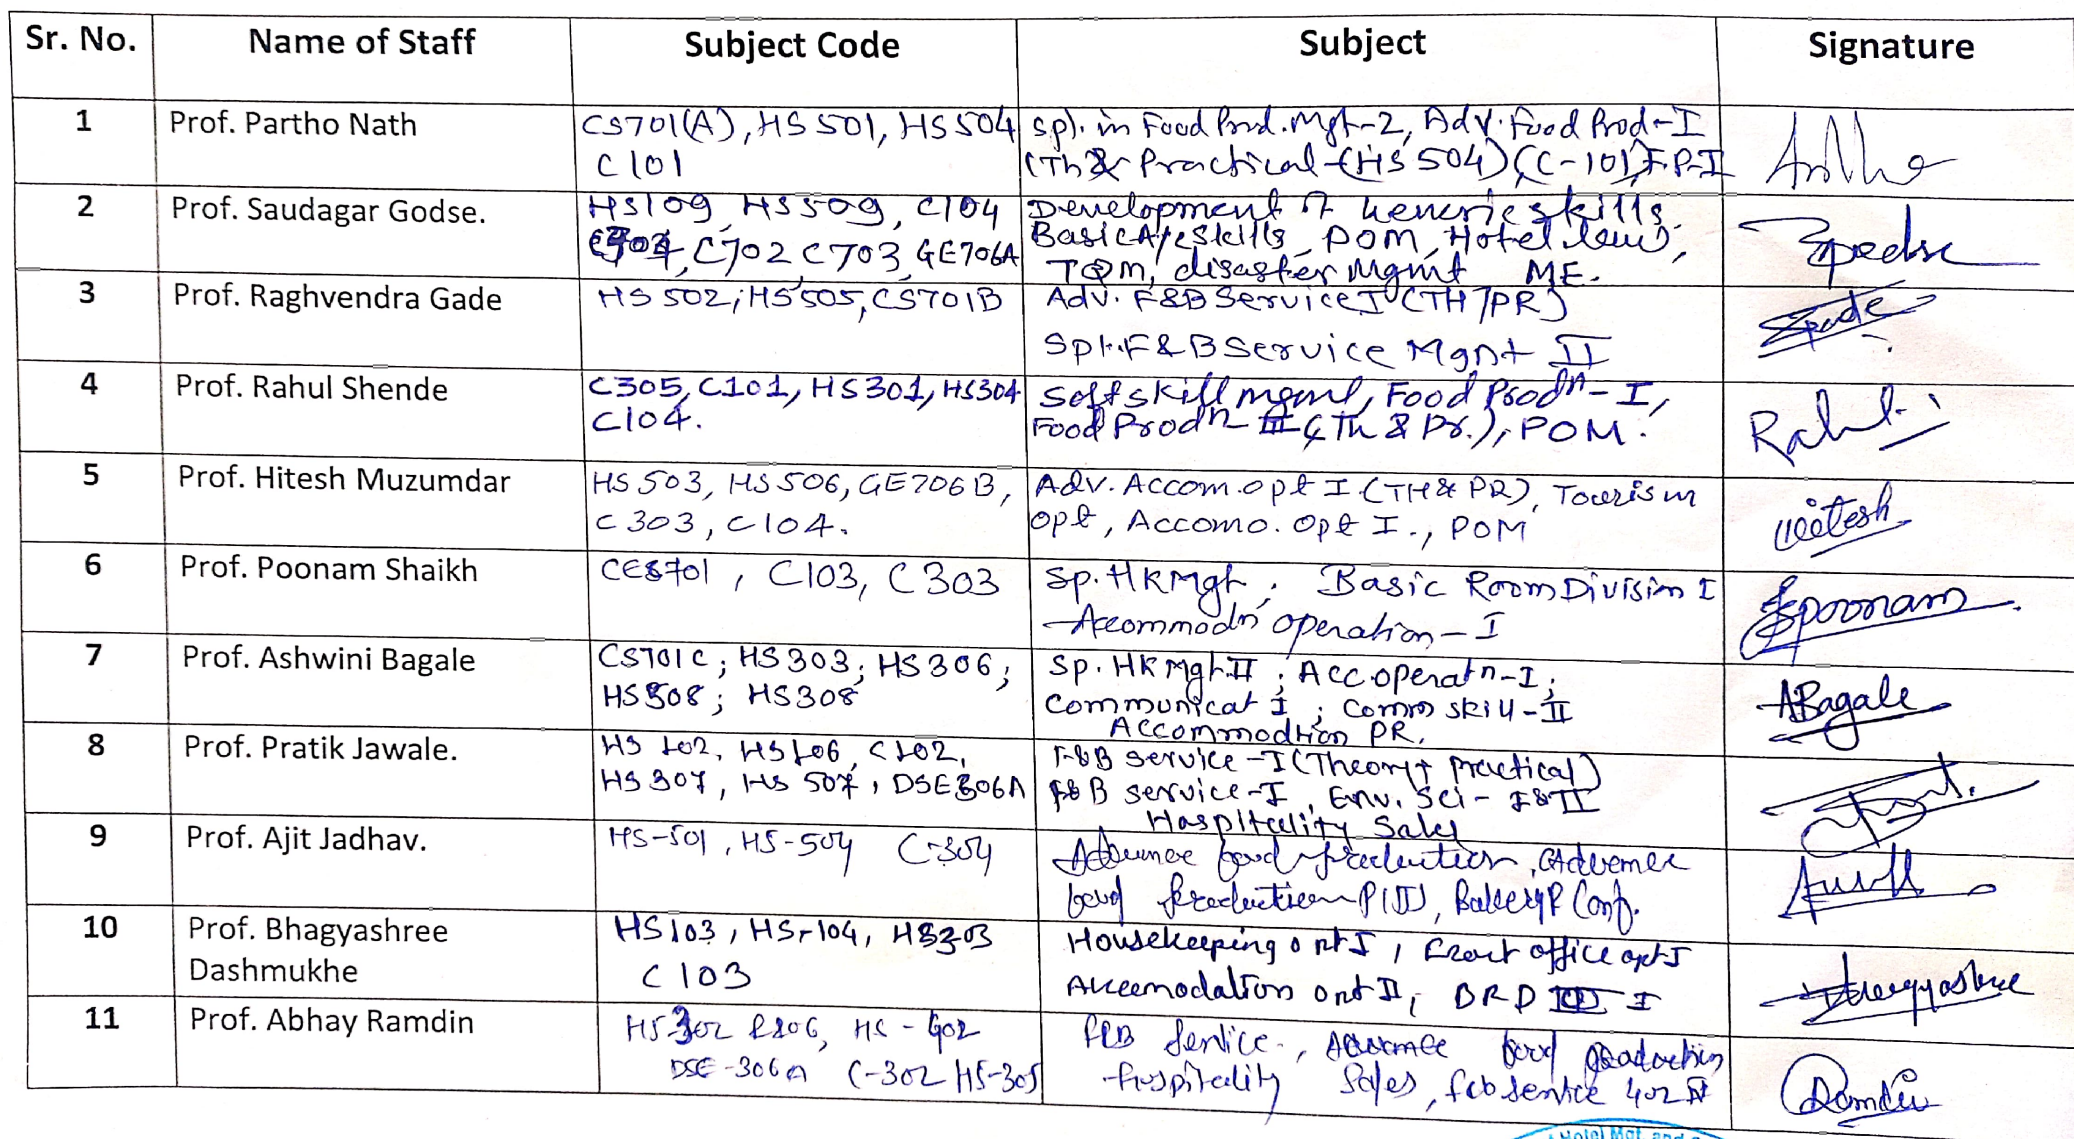 Sr. No. Name of Staff Subject Code Subject Signature
1 Prof. Partho Nath
CS701(A), HS 501, HS 504
C 101
Spl. in Food Prod. Mgt-2, Adv. Food Prod-I
(Th & Practical (HS 504) (C-101) F.P-I
2 Prof. Saudagar Godse.
HS109, HS509, C104
C702, C703, GE706A
Development of Generic skills,
Basic skills, POM, Hotel law,
TQM, disaster Mgmt ME.
3 Prof. Raghvendra Gade
HS 502, HS505, CS701B
Adv. F&B Service I (TH/PR)
Spl. F&B Service Mgnt II
4 Prof. Rahul Shende
C305, C101, HS301, HS304
C104.
Soft skill mgmt, Food Prodn - I,
Food Prodn III (Th & Pr.), POM.
Rahul
5 Prof. Hitesh Muzumdar
HS 503, HS 506, GE706B,
C303, C104.
Adv. Accom. opt I (TH & PR), Tourism
opt, Accomo. Opt I., POM
Hitesh
6 Prof. Poonam Shaikh
C103, C303
Sp. HK Mgt, Basic Room Division I
Accommodn operation - I
poonam
7 Prof. Ashwini Bagale
CS701C; HS303; HS306;
HS508; HS308
Sp. HK Mgt II; Acc. operatn-I;
Communicat I; Comm skill-II
Accommodtion PR.
ABagale
8 Prof. Pratik Jawale.
HS 102, HS106, C102,
HS307, HS 507, DSE306A
F&B service - I (Theory + practical)
F&B service-I, Env. Sci - I & II
Hospitality Sales
9 Prof. Ajit Jadhav.
HS-501, HS-504 C-304
Advance food production, Advance
food production P(II), Bakery & Conf.
10 Prof. Bhagyashree
Dashmukhe
HS103, HS-104, HS303
C 103
Housekeeping opt I, Front office opt I
Accemodation opt II, BRD I
11 Prof. Abhay Ramdin
HS 302 &
DSE-306A C-302 HS-305
F&B Service, Advance food production
Hospitality Sales, f&b service 402
Ramdin